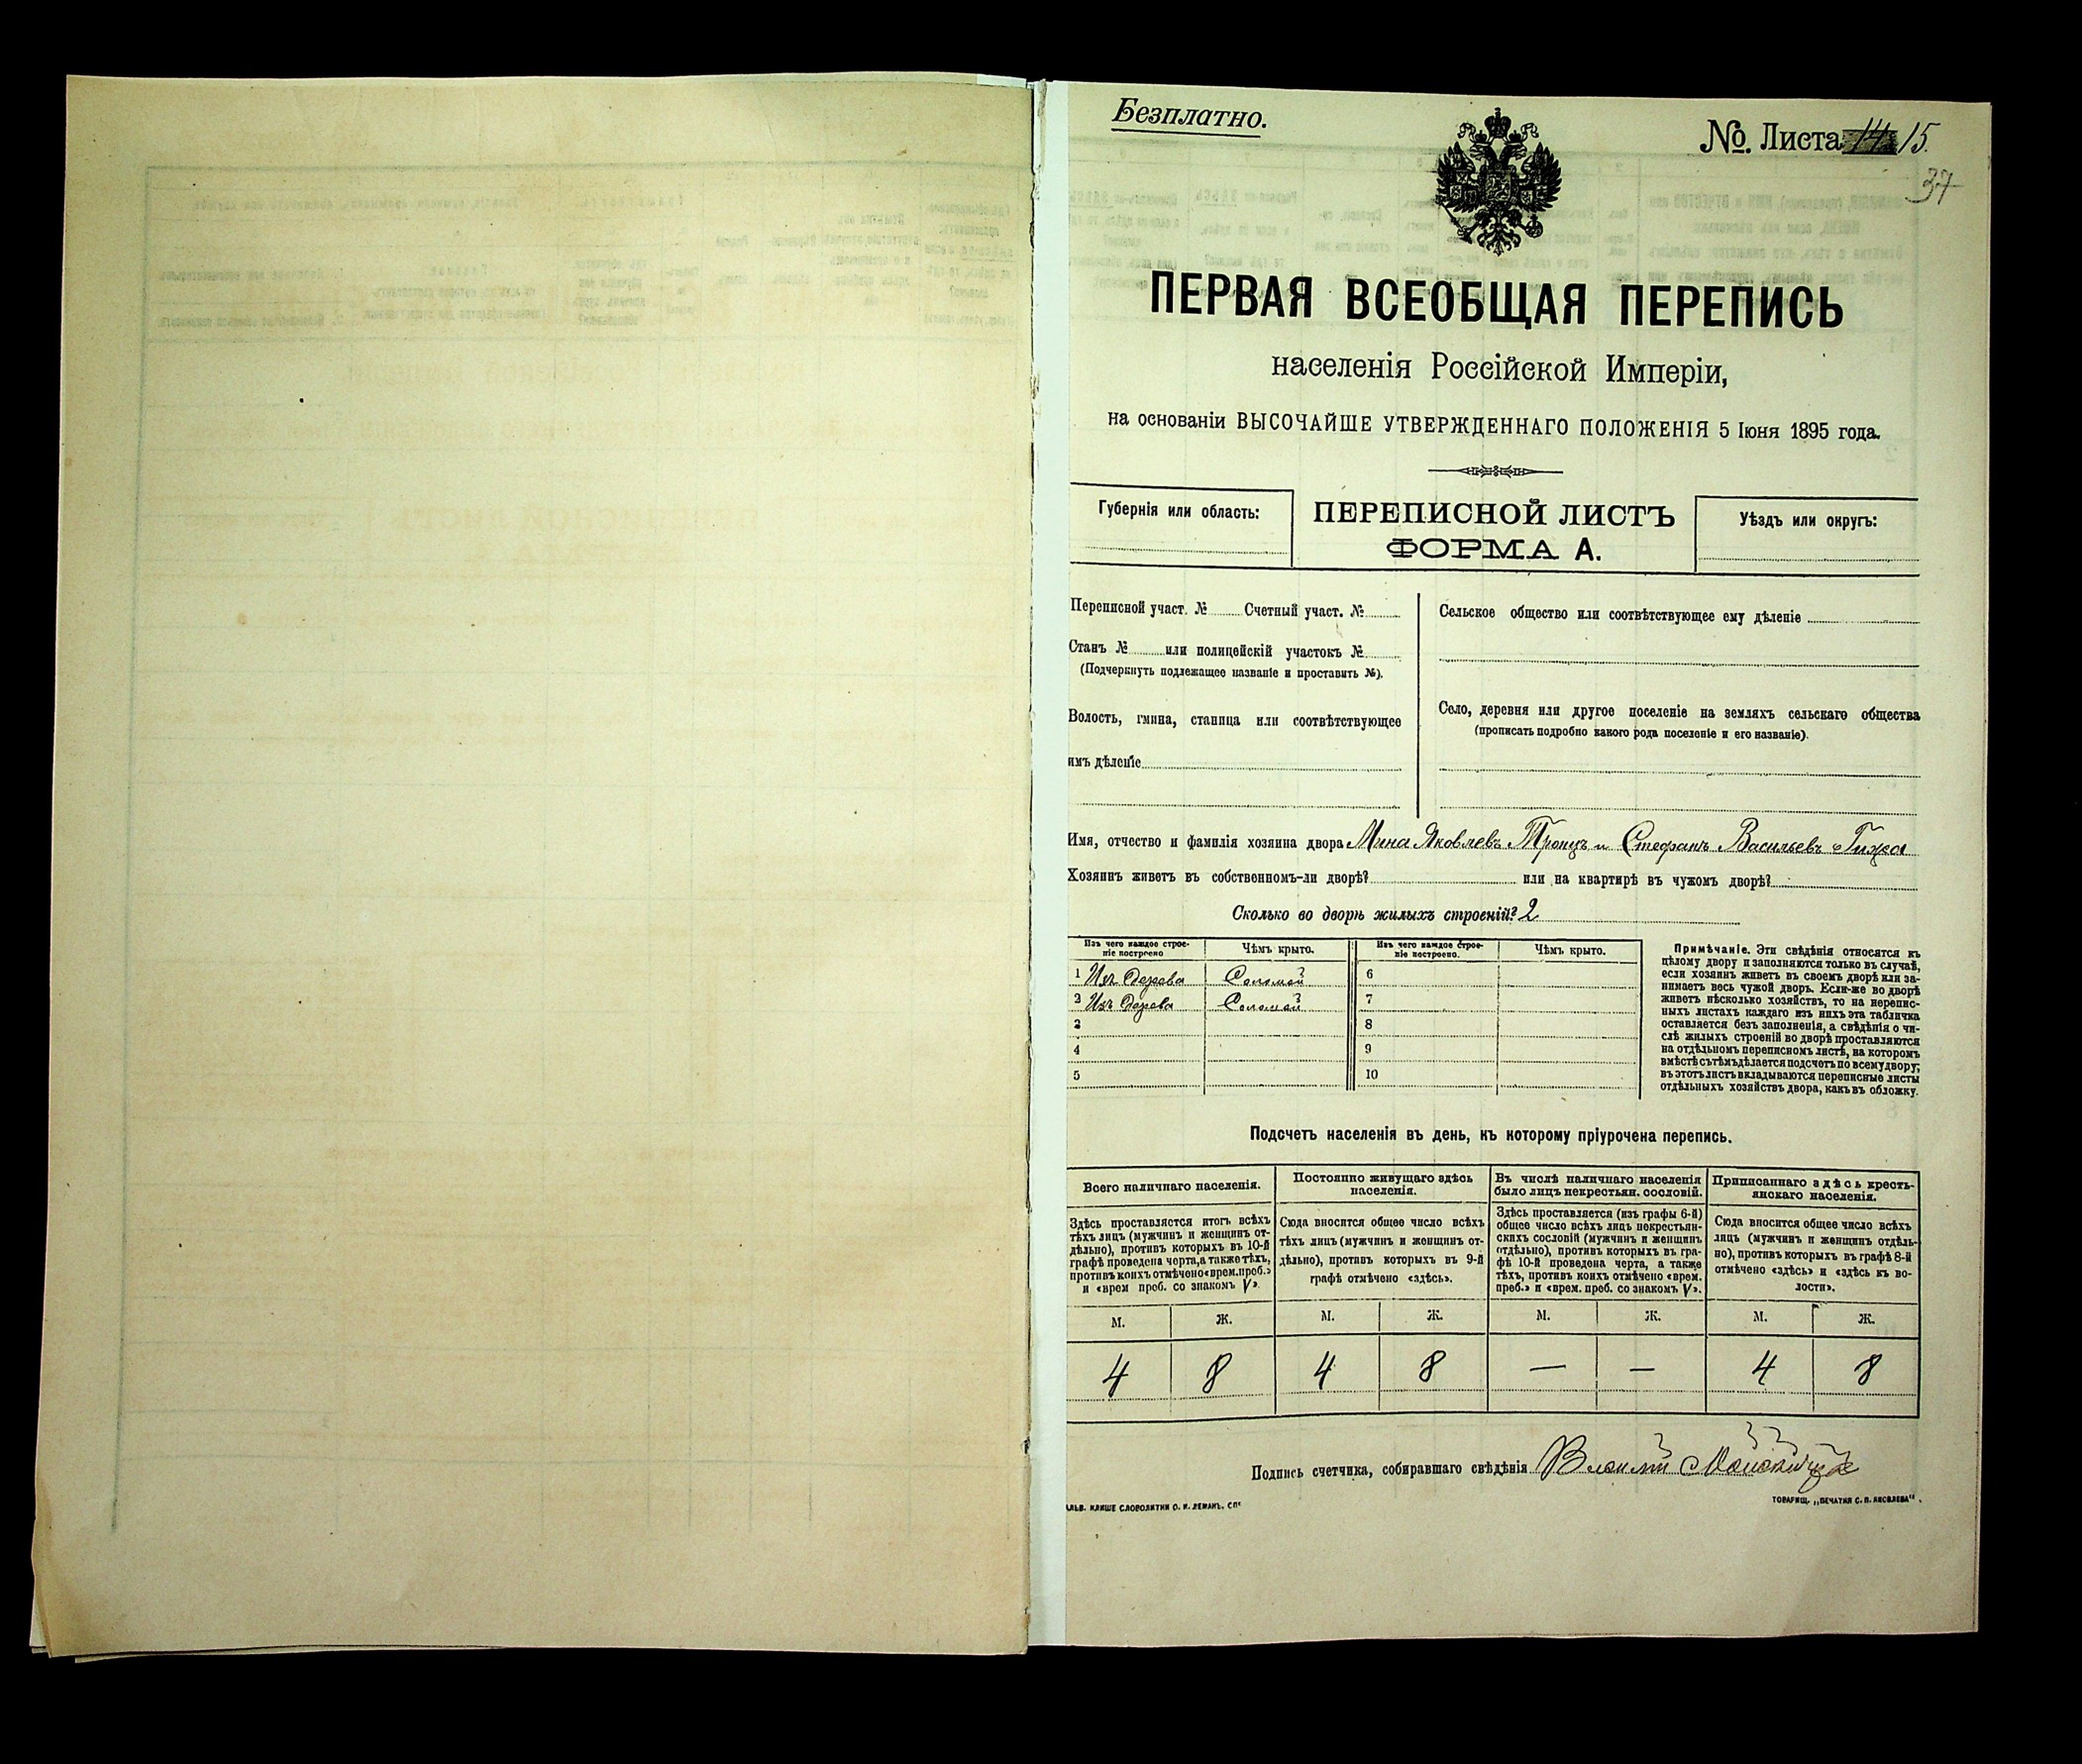 Безплатно.
№. Листа 14 15.
37
ПЕРВАЯ ВСЕОБЩАЯ ПЕРЕПИСЬ
населенія Россійской Имперіи,
на основаніи ВЫСОЧАЙШЕ УТВЕРЖДЕННАГО ПОЛОЖЕНІЯ 5 Іюня 1895 года.
Губернія или область:
ПЕРЕПИСНОЙ ЛИСТЪ
ФОРМА А.
Уѣздъ или округъ:
Переписной участ. № Счетный участ. №
Станъ № или полицейскій участокъ №
(Подчеркнуть подлежащее названіе и проставить №).
Волость, гмина, станица или соотвѣтствующее
имъ дѣленіе
Сельское общество или соотвѣтствующее ему дѣленіе
Село, деревня или другое поселеніе на земляхъ сельскаго общества
(прописать подробно какого рода поселеніе и его названіе).
Имя, отчество и фамилія хозяина двора Мина Яковлевъ Троцъ и Стефанъ Васильевъ Гижа
Хозяинъ живетъ въ собственномъ-ли дворѣ? или на квартирѣ въ чужомъ дворѣ?
Сколько во дворѣ жилыхъ строеній? 2
Изъ чего каждое строе-
ніе построено
Чѣмъ крыто.
Изъ чего каждое строе-
ніе построено.
Чѣмъ крыто.
1 Изъ дерева Соломой 6
2 Изъ дерева Соломой 7
3 8
4 9
5 10
Примѣчаніе. Эти свѣдѣнія относятся къ
цѣлому двору и заполняются только въ случаѣ,
если хозяинъ живетъ въ своемъ дворѣ или за-
нимаетъ весь чужой дворъ. Если-же во дворѣ
живетъ нѣсколько хозяйствъ, то на перепис-
ныхъ листахъ каждаго изъ нихъ эта табличка
оставляется безъ заполненія, а свѣдѣнія о чи-
слѣ жилыхъ строеній во дворѣ проставляются
на отдѣльномъ переписномъ листѣ, на которомъ
вмѣстѣ съ тѣмъ дѣлается подсчетъ по всему двору;
въ этотъ листъ вкладываются переписные листы
отдѣльныхъ хозяйствъ двора, какъ въ обложку.
Подсчетъ населенія въ день, къ которому пріурочена перепись.
Всего наличнаго населенія.
Здѣсь проставляется итогъ всѣхъ
тѣхъ лицъ (мужчинъ и женщинъ от-
дѣльно), противъ которыхъ въ 10-й
графѣ проведена черта, а также тѣхъ,
противъ коихъ отмѣчено «врем. преб.»
и «врем преб. со знакомъ V».
Постоянно живущаго здѣсь
населенія.
Сюда вносится общее число всѣхъ
тѣхъ лицъ (мужчинъ и женщинъ от-
дѣльно), противъ которыхъ въ 9-й
графѣ отмѣчено «здѣсь».
Въ числѣ наличнаго населенія
было лицъ некрестьян. сословій.
Здѣсь проставляется (изъ графы 6-й)
общее число всѣхъ лицъ некрестьян-
скихъ сословій (мужчинъ и женщинъ
отдѣльно), противъ которыхъ въ гра-
фѣ 10-й проведена черта, а также
тѣхъ, противъ коихъ отмѣчено «врем.
преб.» и «врем. преб. со знакомъ V».
Приписаннаго здѣсь кресть-
янскаго населенія.
Сюда вносится общее число всѣхъ
лицъ (мужчинъ и женщинъ отдѣль-
но), противъ которыхъ въ графѣ 8-й
отмѣчено «здѣсь» и «здѣсь къ во-
лости».
М. Ж. М. Ж. М. Ж. М. Ж.
4 8 4 8 — — 4 8
Подпись счетчика, собиравшаго свѣдѣнія
АЛЬВ. КЛИШЕ СЛОВОЛИТНИ О. И. ЛЕМАНЪ. СПб
ТОВАРИЩ. „ПЕЧАТНЯ С. П. ЯКОВЛЕВА".